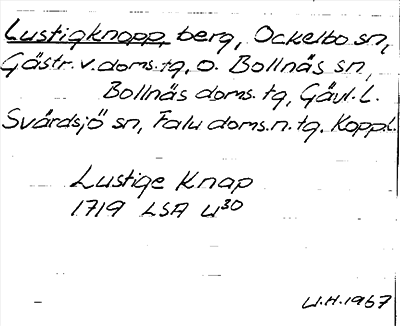 Lustigknopp, berg, Ockelbo sn,
Gästr. v. doms. tg, o. Bollnäs sn,
Bollnäs doms. tg, Gävl. L.
Svärdsjö sn, Falu doms. n. tg. Koppl.
Lustige Knap
1719 LSA U30
U.H. 1967